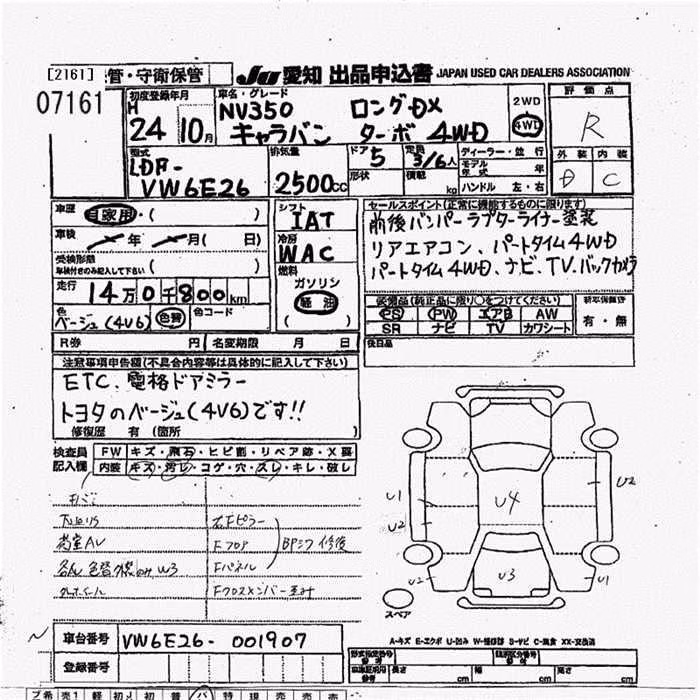 [2161] 管・守衛保管 JU 愛知 出品申込書 JAPAN USED CAR DEALERS ASSOCIATION
07161
初度登録年月 車名・グレード 評価点
H 24 10月 NV350 ロングDX 2WD
キャラバン ターボ 4WD 4WD
R
型式 排気量 ドア 定員 ディーラー・並行 外装 内装
LDF- 5 3/6人 モデル年式 年 D C
VW6E26 2500cc 形状 積載 kg ハンドル 左・右
車歴 自家用・( ) シフト セールスポイント(正常に機能するものに限ります)
IAT 前後バンパーラプターライナー塗装
車検 年 月( 日) 冷房 リアエアコン、パートタイム4WD
受検形態 WAC パートタイム4WD、ナビ、TV、バックカメラ
車検付きのみ記入して下さい ( )
走行 燃料
14万0千800km ガソリン 装備品(純正品に限り○をつけてください)
軽油 PS PW エアB AW 有・無
色 色替 色コード ( ) SR ナビ TV カワシート
ベージュ(4V6)
R券 円 名変期限 月 日 後日品
注意事項申告欄(不具合内容等は具体的に記入して下さい)
ETC、電格ドアミラー
トヨタのベージュ(4V6)です!!
修復歴 有 (箇所 )
検査員 FW キズ・飛石・ヒビ割・リペア跡・X要
記入欄 内装 キズ・汚レ・コゲ・穴・スレ・キレ・破レ
右Fピラー
Fフロア BPシワ 修復
Fパネル
Fクロスメンバー歪み
U1 U4 U2
U2
U2 U3 U1
スペア
A-キズ E-エクボ U-凹み W-補修跡 S-サビ C-腐食 XX-交換済
車台番号 VW6E26-001907 型式指定番号 類別区分番号
登録番号 長さ cm 幅 cm 高さ cm